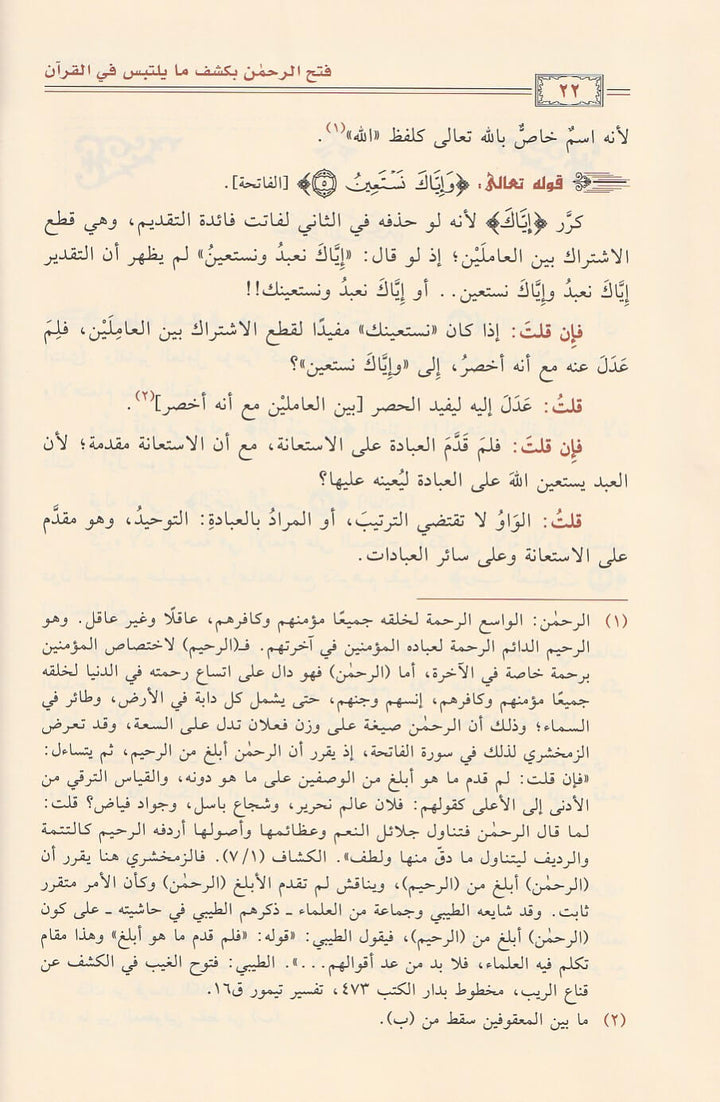 فتح الرحمٰن بكشف ما يلتبس في القرآن
٢٢
لأنه اسمٌ خاصٌّ بالله تعالى كلفظ «الله»(١).
قوله تعالىٰ: ﴿وَإِيَّاكَ نَسْتَعِينُ ٥﴾ [الفاتحة].
كرَّر ﴿إِيَّاكَ﴾ لأنه لو حذفه في الثاني لفاتت فائدة التقديم، وهي قطع
الاشتراك بين العاملَيْن؛ إذ لو قال: «إيَّاكَ نعبدُ ونستعينُ» لم يظهر أن التقدير
إيَّاكَ نعبدُ وإيَّاكَ نستعين.. أو إيَّاكَ نعبدُ ونستعينك!!
فإِن قلتَ: إذا كان «نستعينك» مفيدًا لقطع الاشتراك بين العامِلَيْن، فلِمَ
عَدَلَ عنه مع أنه أخصرُ، إلى «وإيَّاكَ نستعين»؟
قلتُ: عَدَلَ إليه ليفيد الحصر [بين العامليْن مع أنه أخصر](٢).
فإِن قلتَ: فلمَ قَدَّمَ العبادة على الاستعانة، مع أن الاستعانة مقدمة؛ لأن
العبد يستعين اللهَ على العبادة ليُعينه عليها؟
قلتُ: الوَاوُ لا تقتضي الترتيبَ، أو المرادُ بالعبادةِ: التوحيدُ، وهو مقدَّم
على الاستعانة وعلى سائر العبادات.
(١) الرحمٰن: الواسع الرحمة لخلقه جميعًا مؤمنهم وكافرهم، عاقلًا وغير عاقل. وهو
الرحيم الدائم الرحمة لعباده المؤمنين في آخرتهم. فـ(الرحيم) لاختصاص المؤمنين
برحمة خاصة في الآخرة، أما (الرحمٰن) فهو دال على اتساع رحمته في الدنيا لخلقه
جميعًا مؤمنهم وكافرهم، إنسهم وجنهم، حتى يشمل كل دابة في الأرض، وطائر في
السماء؛ وذلك أن الرحمٰن صيغة على وزن فعلان تدل على السعة، وقد تعرض
الزمخشري لذلك في سورة الفاتحة، إذ يقرر أن الرحمٰن أبلغ من الرحيم، ثم يتساءل:
«فإن قلت: لم قدم ما هو أبلغ من الوصفين على ما هو دونه، والقياس الترقي من
الأدنى إلى الأعلى كقولهم: فلان عالم نحرير، وشجاع باسل، وجواد فياض؟ قلت:
لما قال الرحمٰن فتناول جلائل النعم وعظائمها وأصولها أردفه الرحيم كالتتمة
والرديف ليتناول ما دقّ منها ولطف». الكشاف (٧/١). فالزمخشري هنا يقرر أن
(الرحمٰن) أبلغ من (الرحيم)، ويناقش لم تقدم الأبلغ (الرحمٰن) وكأن الأمر متقرر
ثابت. وقد شايعه الطيبي وجماعة من العلماء ـ ذكرهم الطيبي في حاشيته ـ على كون
(الرحمٰن) أبلغ من (الرحيم)، فيقول الطيبي: «قوله: «فلم قدم ما هو أبلغ» وهذا مقام
تكلم فيه العلماء، فلا بد من عد أقوالهم...». الطيبي: فتوح الغيب في الكشف عن
قناع الريب، مخطوط بدار الكتب ٤٧٣، تفسير تيمور ق١٦.
(٢) ما بين المعقوفين سقط من (ب).